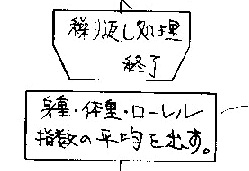 繰り返し処理
終了
身重・体重・ローレル
指数の平均を出す。